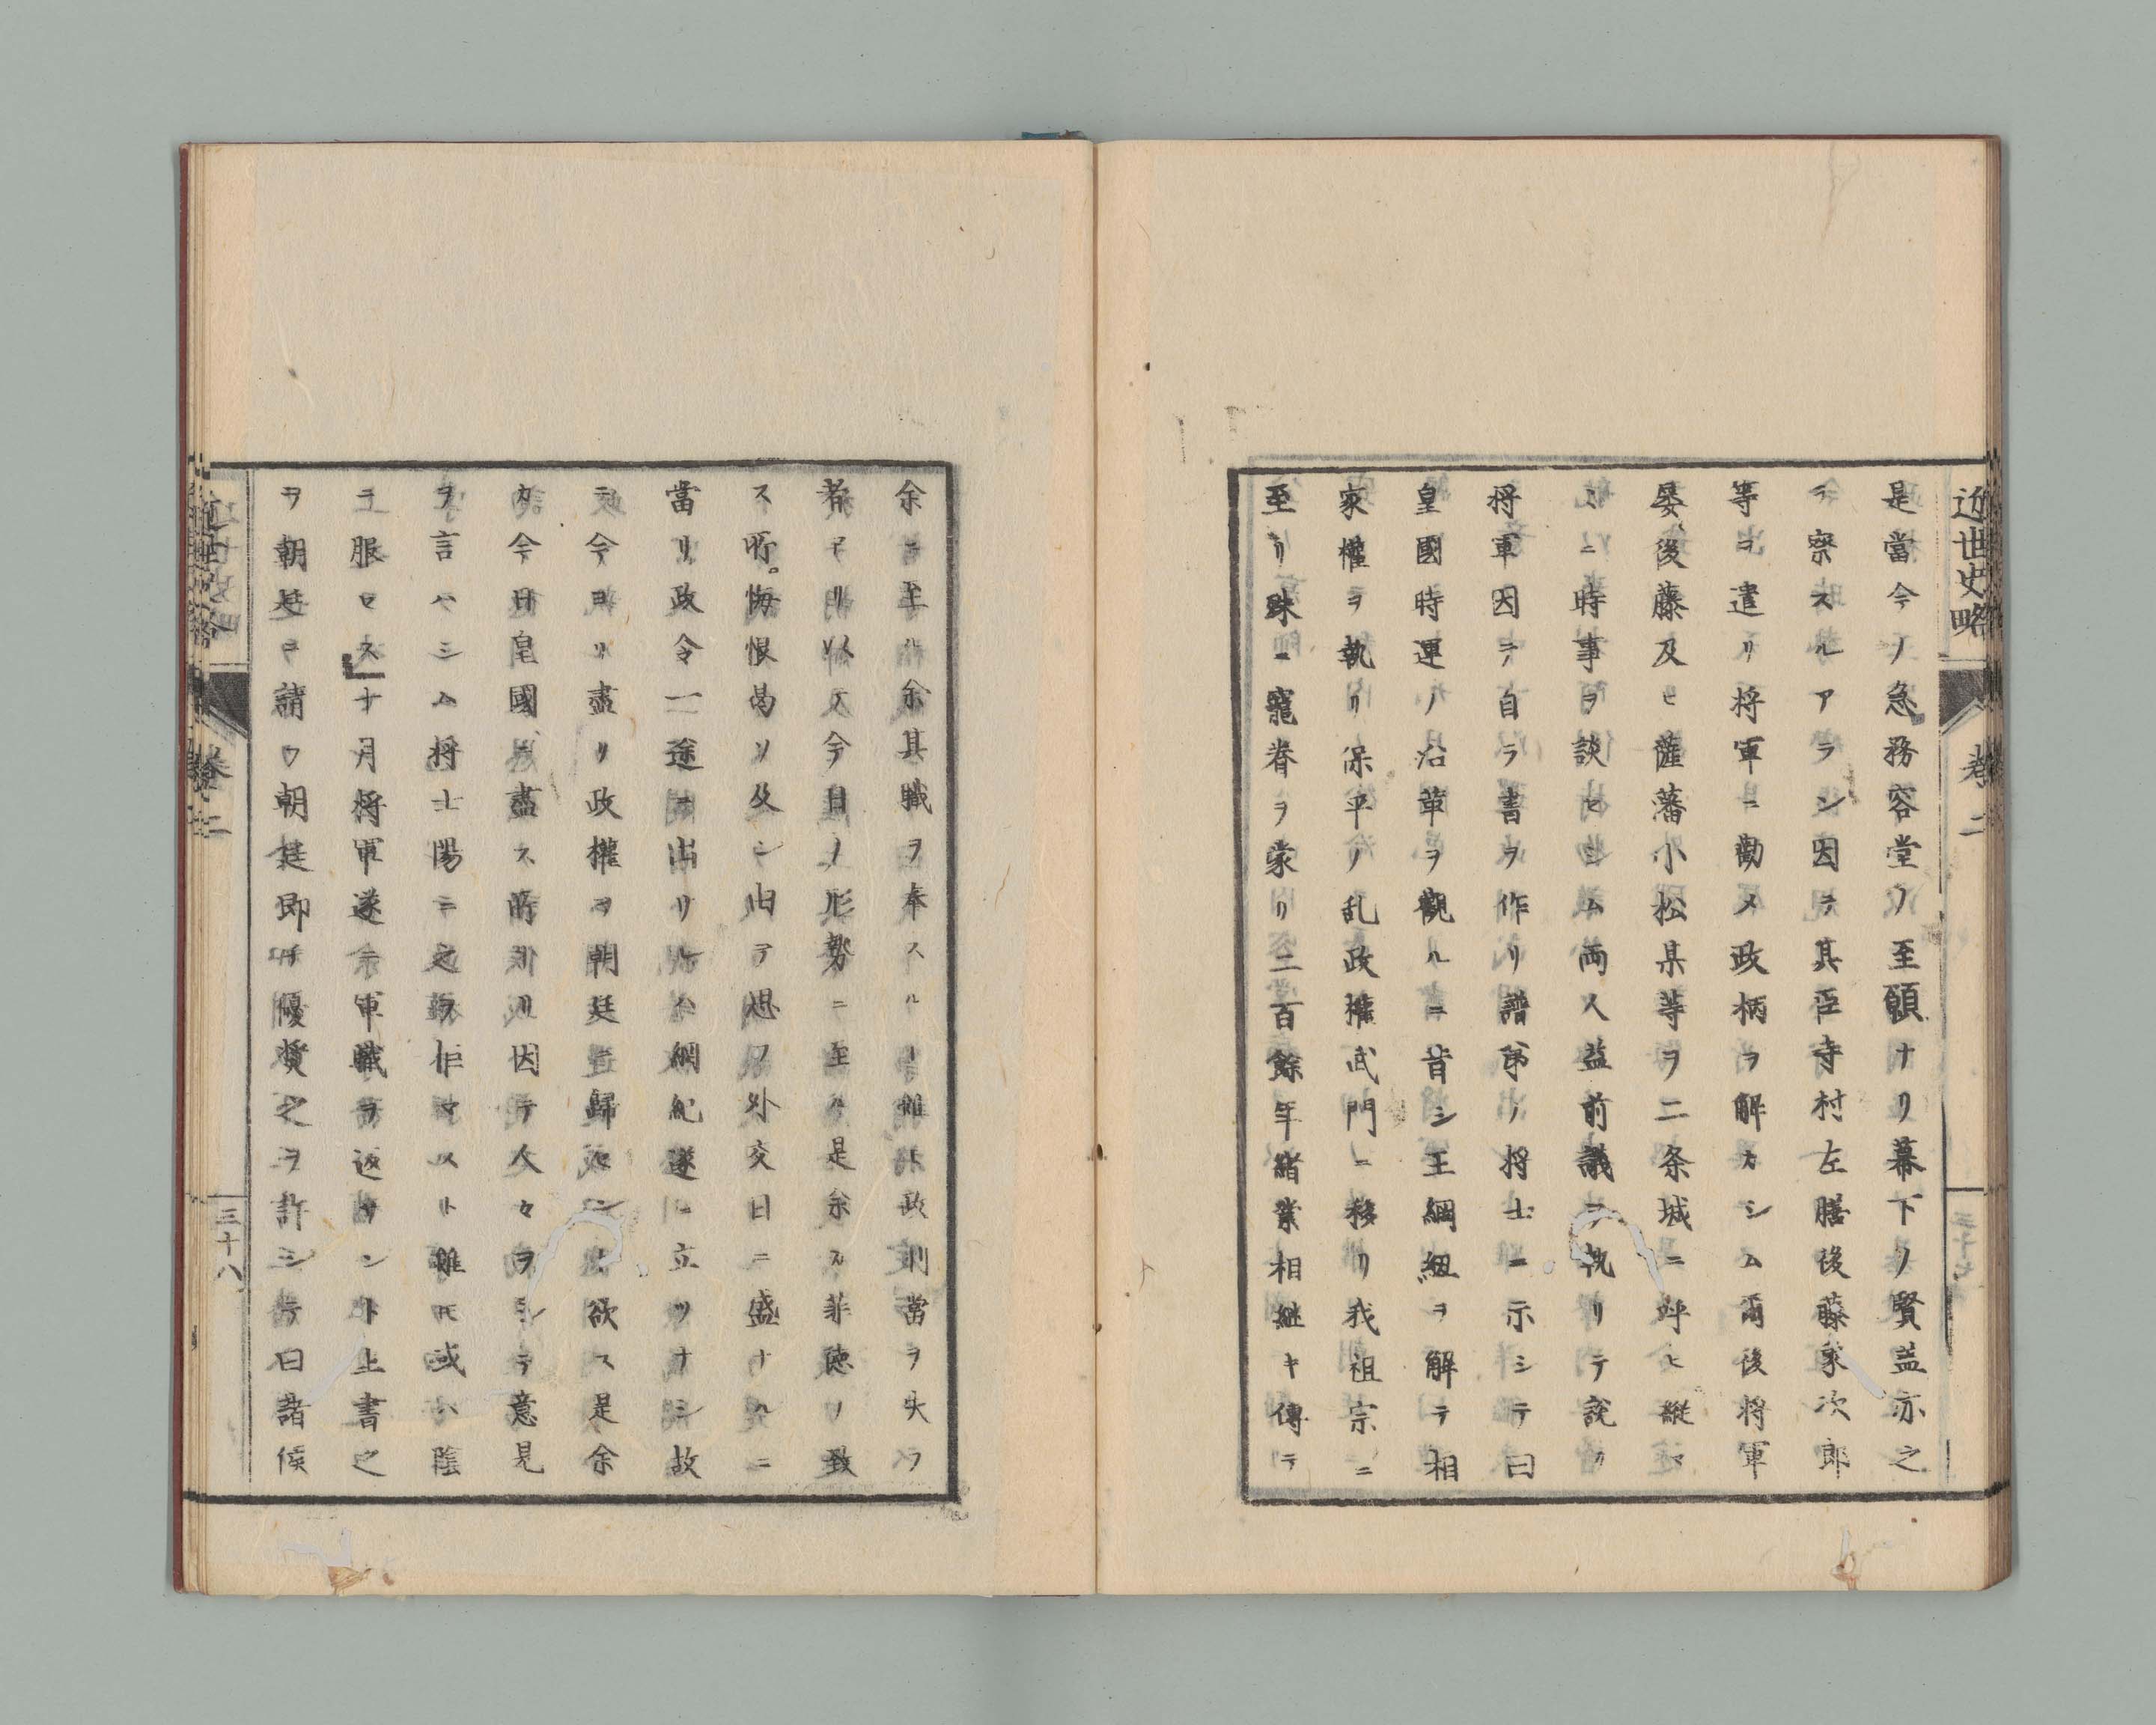 近世史略
卷二
是當今ノ急務容堂ノ至願ナリ幕下ノ賢盖亦之
ヲ察スルアラン因テ其臣寺村左膳後藤象次郎
等ヲ遣リ将軍ニ勸メ政柄ヲ解カシム爾後将軍
屡後藤及ヒ薩藩小松某等ヲ二条城ニ呼ヒ縦マ
ニ時事ヲ談セシム両人益前議ヲ執リテ説ク
将軍因テ自ラ書ヲ作リ譜第ノ将士ニ示シテ曰
皇國時運ノ沿革ヲ觀ルニ昔シ王綱紐ヲ解テ相
家權ヲ執リ保平ノ乱政權武門ニ移リ我祖宗ニ
至リ殊ニ寵眷ヲ蒙リ二百餘年緒業相継キ傳テ
余ニ至ル余其職ヲ奉スル雖ヒ政刑當ヲ失フ
者アリ以テ今日ノ形勢ニ至ル是余カ菲徳ノ致
ス所悔恨曷ソ及シ由ア思フ外交日ニ盛ナルニ
當リ政令一途ニ出リレハ綱紀遂ニ立ツナシ故
ニ今ヨリ盡ク政權ヲ朝廷ニ歸セント欲ス是余
カ今日皇國ニ盡ス所ナリ因テ人々ヲシテ意見
ヲ言ハシム将士陽ニ之 作 雖モ或ハ陰
ニ服セス十月将軍遂ニ軍職ヲ返サント上書之
ヲ朝廷ニ請フ朝廷即チ優奬之ヲ許シテ曰諸侯
卷二
三十八